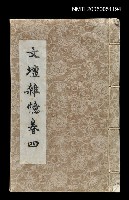 NMTL20050051194
文壇雜憶卷四